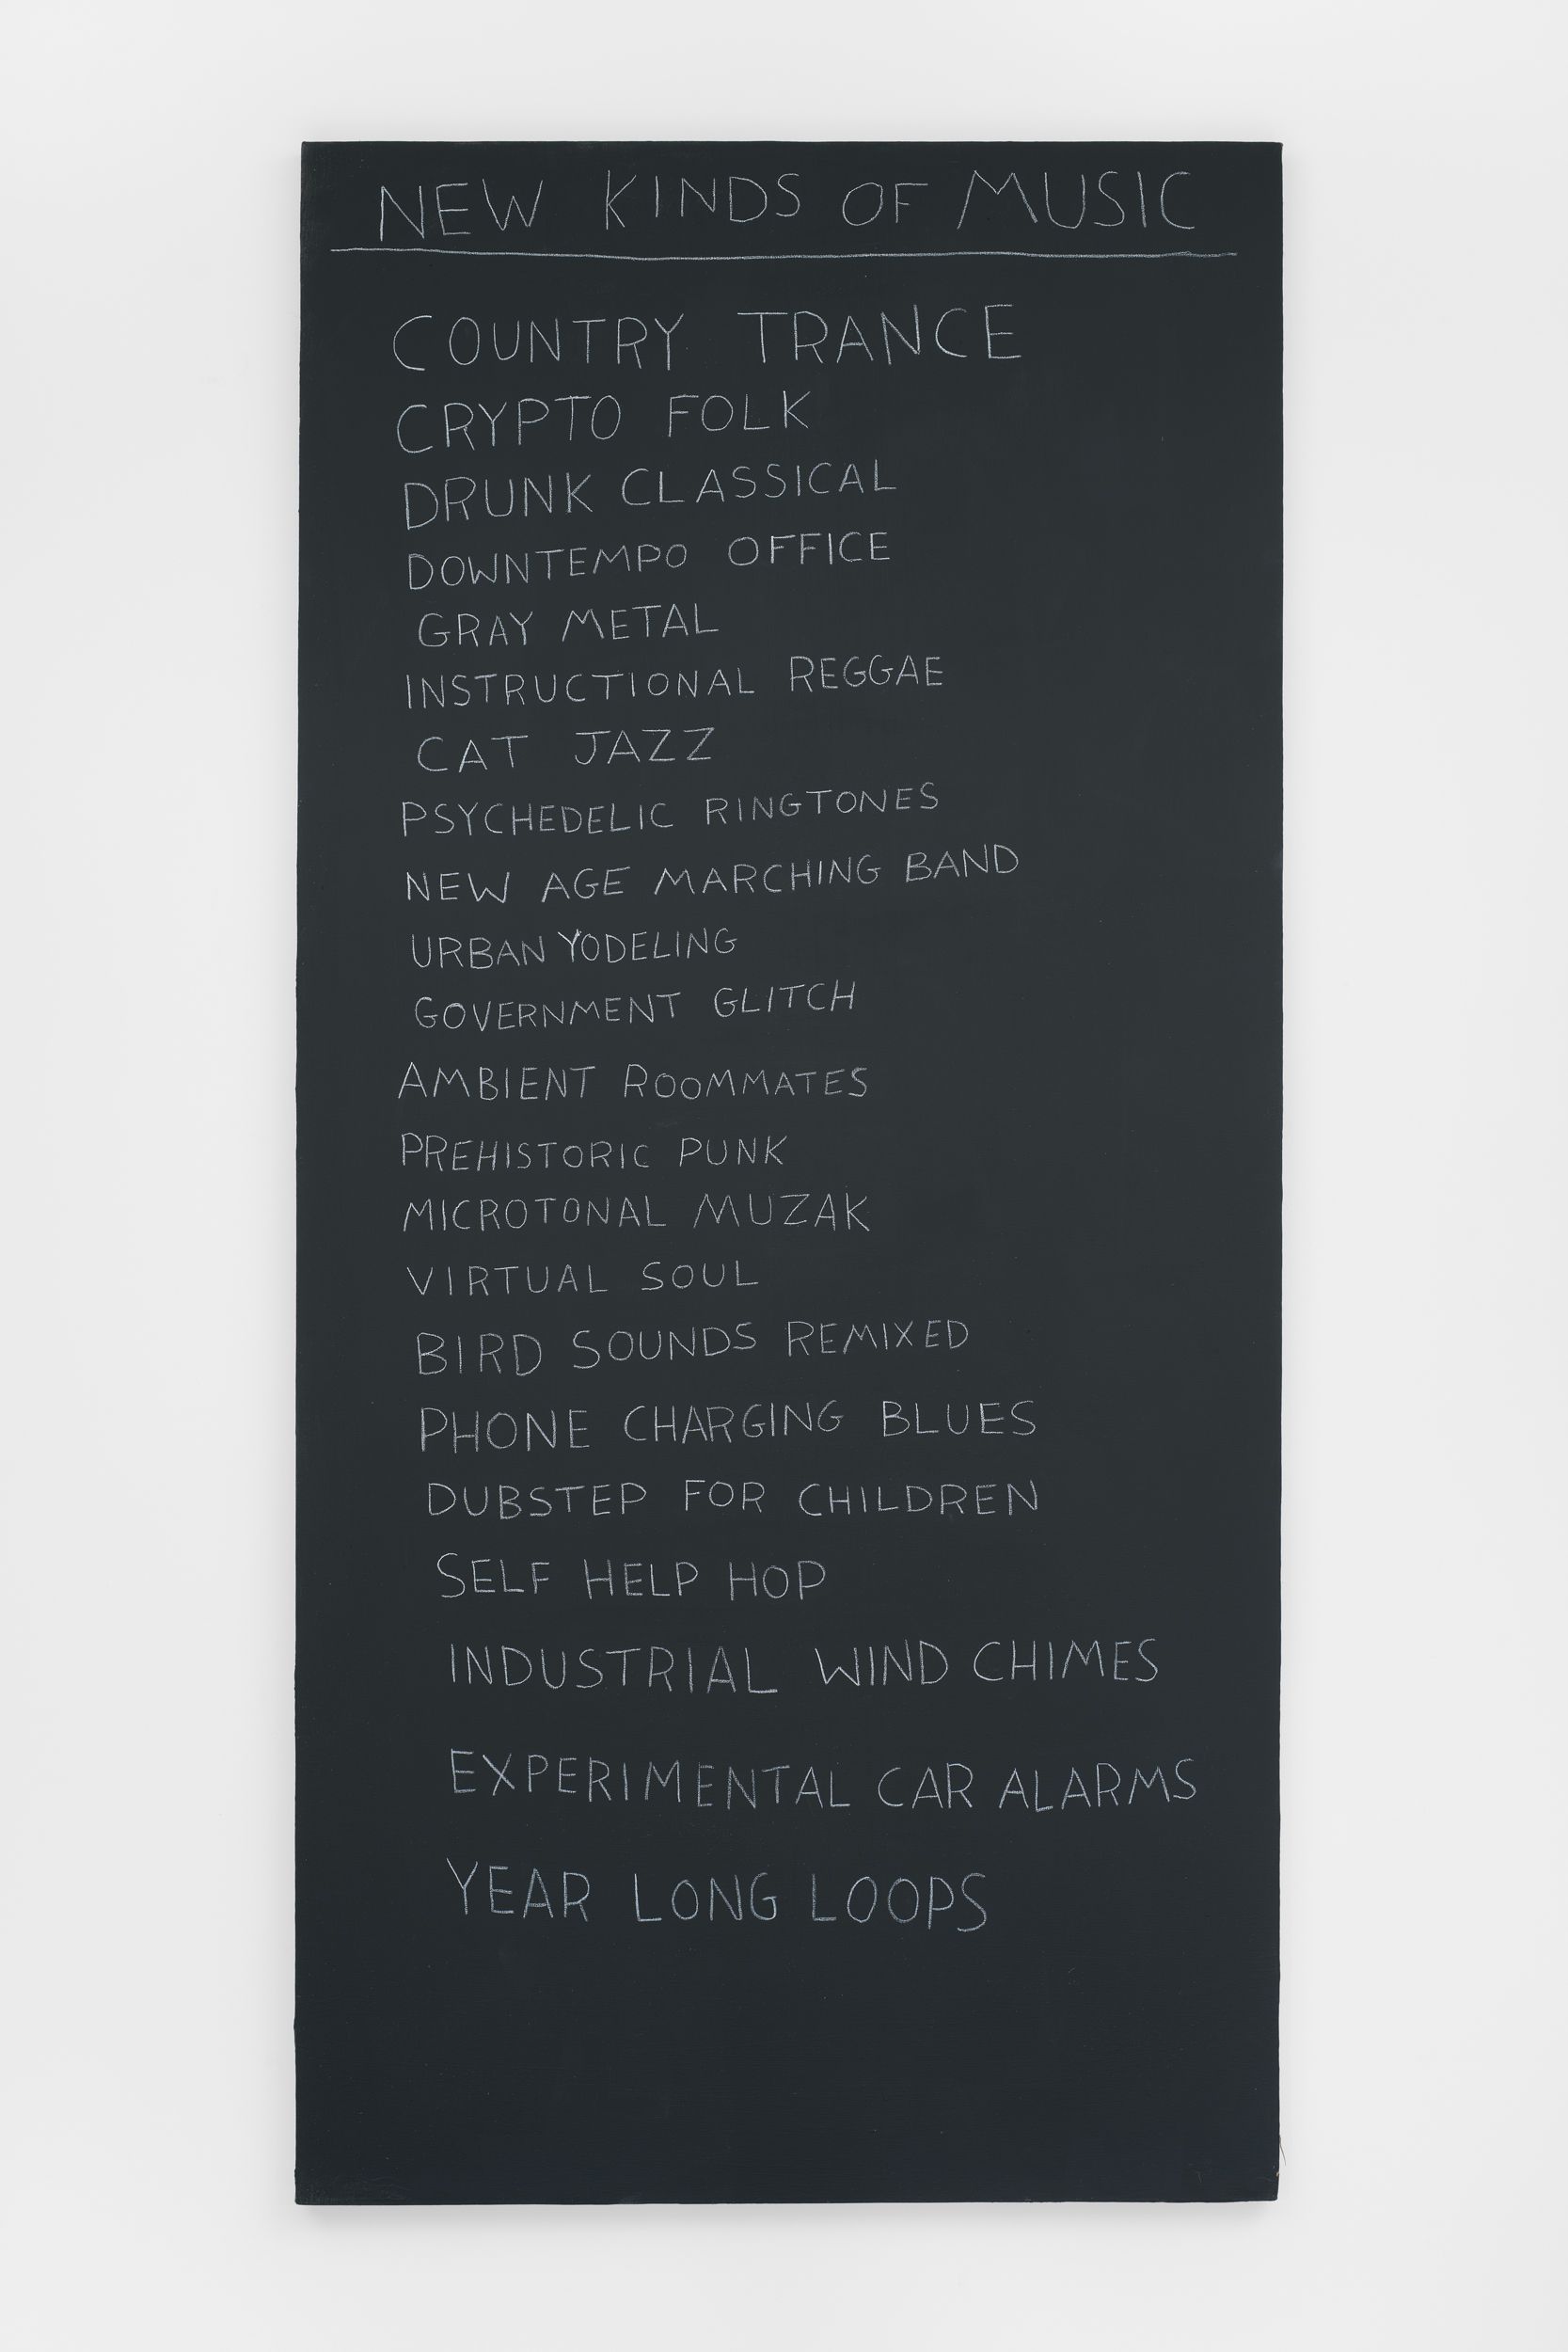 NEW KINDS OF MUSIC
COUNTRY TRANCE
CRYPTO FOLK
DRUNK CLASSICAL
DOWNTEMPO OFFICE
GRAY METAL
INSTRUCTIONAL REGGAE
CAT JAZZ
PSYCHEDELIC RINGTONES
NEW AGE MARCHING BAND
URBAN YODELING
GOVERNMENT GLITCH
AMBIENT ROOMMATES
PREHISTORIC PUNK
MICROTONAL MUZAK
VIRTUAL SOUL
BIRD SOUNDS REMIXED
PHONE CHARGING BLUES
DUBSTEP FOR CHILDREN
SELF HELP HOP
INDUSTRIAL WIND CHIMES
EXPERIMENTAL CAR ALARMS
YEAR LONG LOOPS